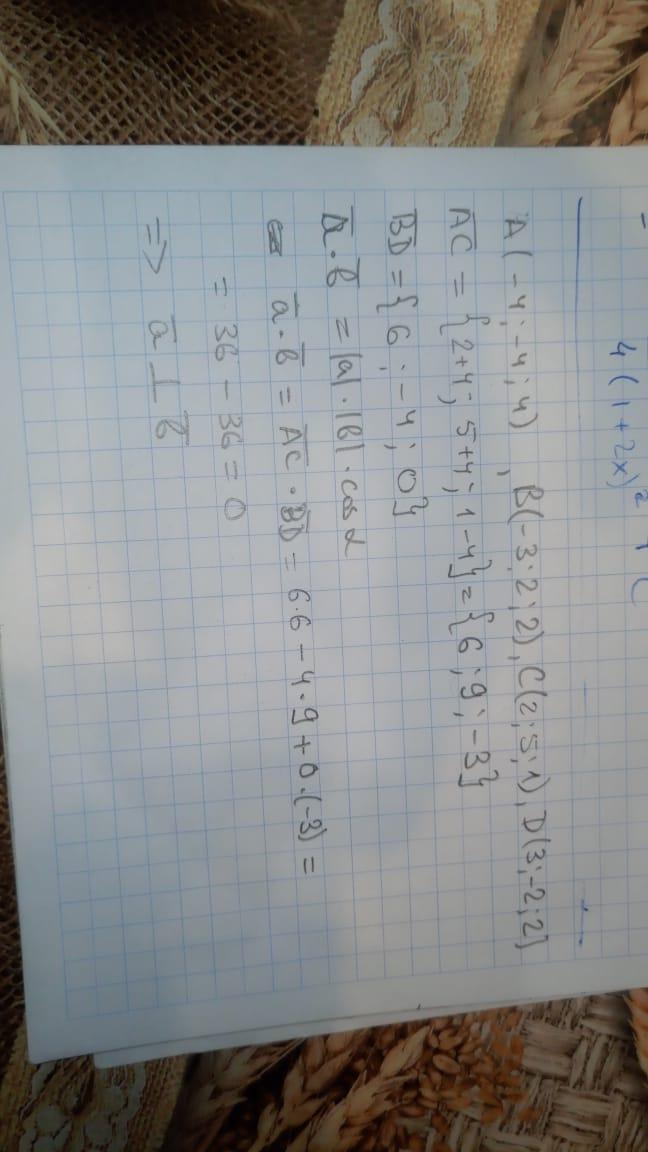 4(1+2x)²
A(-4;-4;4), B(-3;2;2), C(2;5;1), D(3;-2;2)
AC = {2+4; 5+4; 1-4} = {6; 9; -3}
BD = {6; -4; 0}
a̅·b̅ = |a|·|b|·cos α
a̅·b̅ = A̅C̅·B̅D̅ = 6·6 - 4·9 + 0·(-3) =
= 36 - 36 = 0
=> a̅ ⊥ b̅